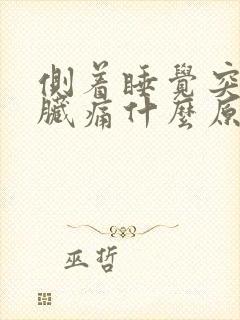 側着睡覺突
臟痛什麼原
巫哲